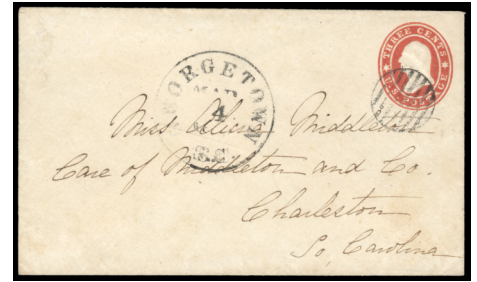 THREE CENTS
U.S. POSTAGE
GEORGETOWN
MAR
4
S.C
Miss Alicia Middleton
Care of Middleton and Co.
Charleston
So, Carolina